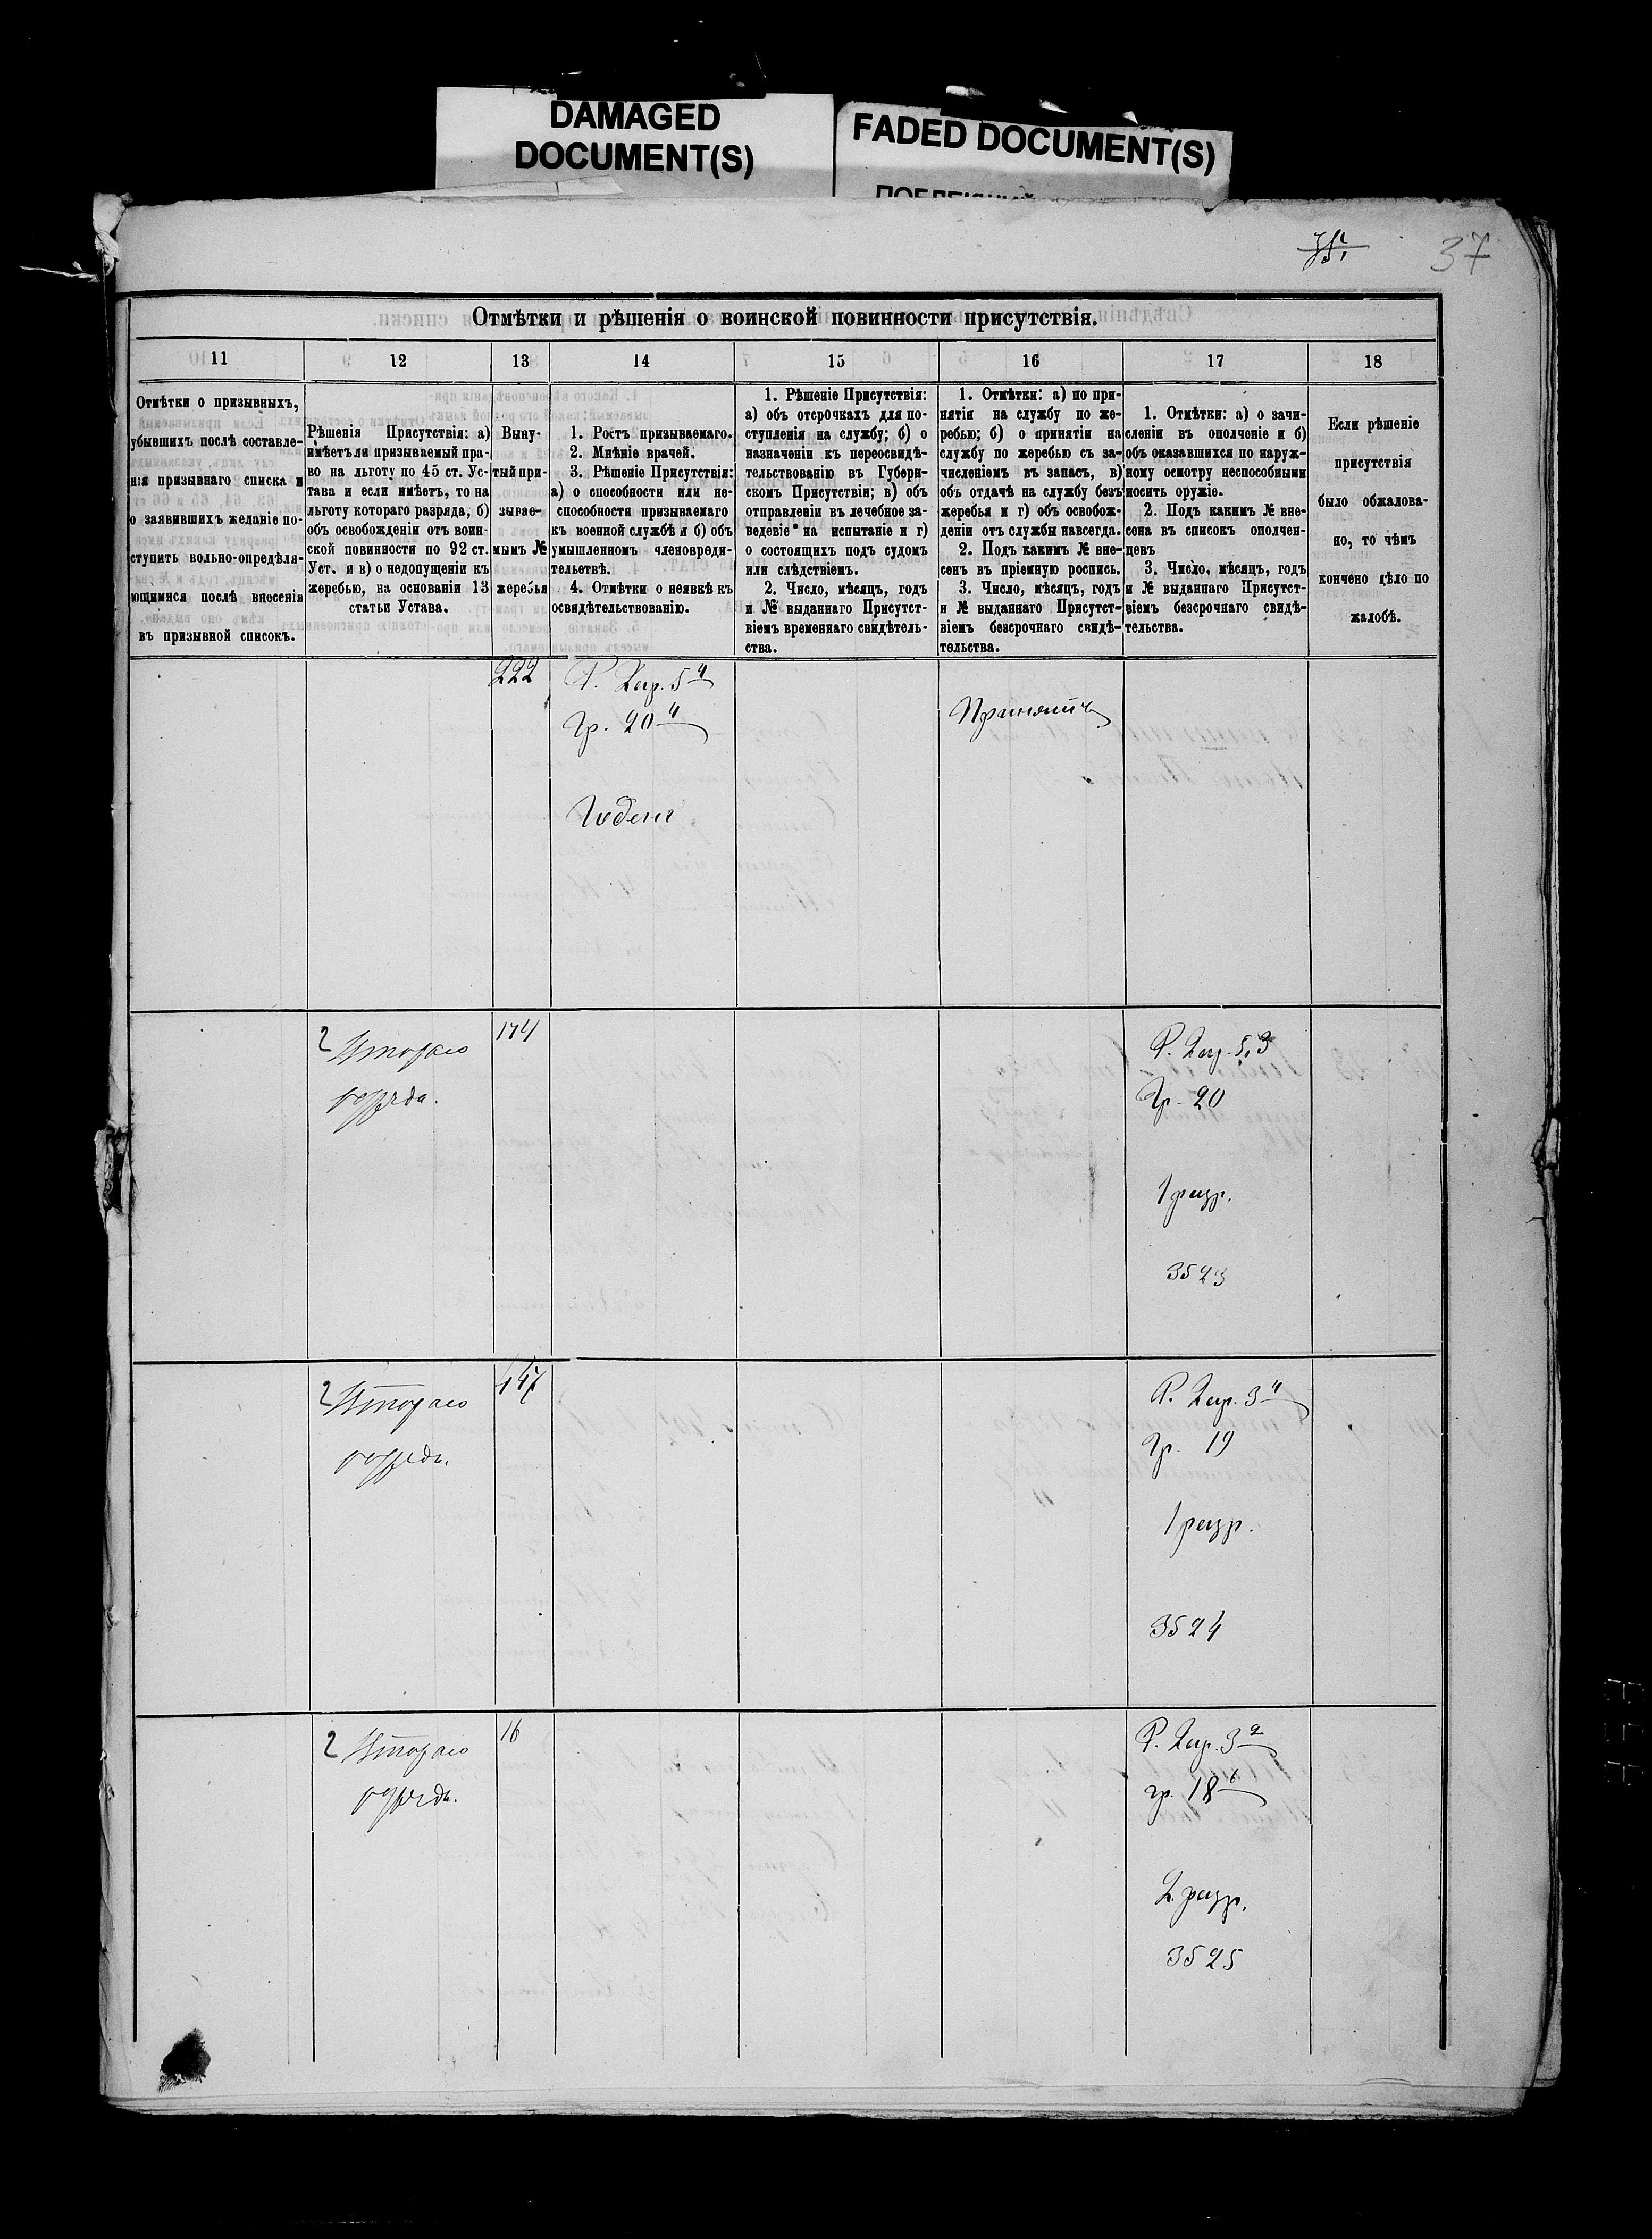 DAMAGED
DOCUMENT(S)
FADED DOCUMENT(S)
37
Отмѣтки и рѣшенія о воинской повинности присутствія.
11
12
13
14
15
16
17
18
Отмѣтки о призывныхъ,
убывшихъ послѣ составле-
нія призывнаго списка и
о заявившихъ желаніе по-
ступить вольно-опредѣля-
ющимися послѣ внесенія
въ призывной списокъ.
Рѣшенія Присутствія: а)
имѣетъ ли призываемый пра-
во на льготу по 45 ст. Ус-
тава и если имѣетъ, то на
льготу котораго разряда, б)
объ освобожденіи отъ воин-
ской повинности по 92 ст.
Уст. и в) о недопущеніи къ
жеребью, на основаніи 13
статьи Устава.
Выну-
тый при-
зывае-
мымъ №
жеребья
1. Ростъ призываемаго.
2. Мнѣніе врачей.
3. Рѣшеніе Присутствія:
а) о способности или не-
способности призываемаго
къ военной службѣ и б) объ
умышленномъ членовреди-
тельетвѣ.
4. Отмѣтки о неявкѣ къ
освидѣтельствованію.
1. Рѣшеніе Присутствія:
а) объ отсрочкахъ для по-
ступленія на службу; б) о
назначеніи къ переосвидѣ-
тельствованію въ Губерн-
скомъ Присутствіи; в) объ
отправленіи въ лечебное за-
веденіе на испытаніе и г)
о состоящихъ подъ судомъ
или слѣдствіемъ.
2. Число, мѣсяцъ, годъ
и № выданнаго Присутст-
віемъ временнаго свидѣтель-
ства.
1. Отмѣтки: а) по при-
нятіи на службу по же-
ребью; б) о принятіи на
службу по жеребью съ за-
численіемъ въ запасъ, в)
объ отдачѣ на службу безъ
жеребья и г) объ освобож-
деніи отъ службы навсегда.
2. Подъ какимъ № вне-
сенъ въ пріемную роспись.
3. Число, мѣсяцъ, годъ
и № выданнаго Присутст-
віемъ безсрочнаго свидѣ-
тельства.
1. Отмѣтки: а) о зачи-
сленіи въ ополченіе и б)
объ оказавшихся по наруж-
ному осмотру неспособными
носить оружіе.
2. Подъ какимъ № вне-
сена въ списокъ ополчен-
цевъ
3. Число, мѣсяцъ, годъ
и № выданнаго Присутст-
віемъ безсрочнаго свидѣ-
тельства.
Если рѣшеніе
присутствія
было обжалова-
но, то чѣмъ
кончено дѣло по
жалобѣ.
222
Р. 2 ар. 5 4
Гр. 20 4
Принятъ
Годенъ
2 Втораго
разряда.
174
Р. 2 ар. 5,3
Гр. 20
1 разр.
3523
2 Втораго
разряда.
447
Р. 2 ар. 3 4
Гр. 19
1 разр.
3524
2 Втораго
разряда.
16
Р. 2 ар. 3
гр. 18
2 разр.
3525